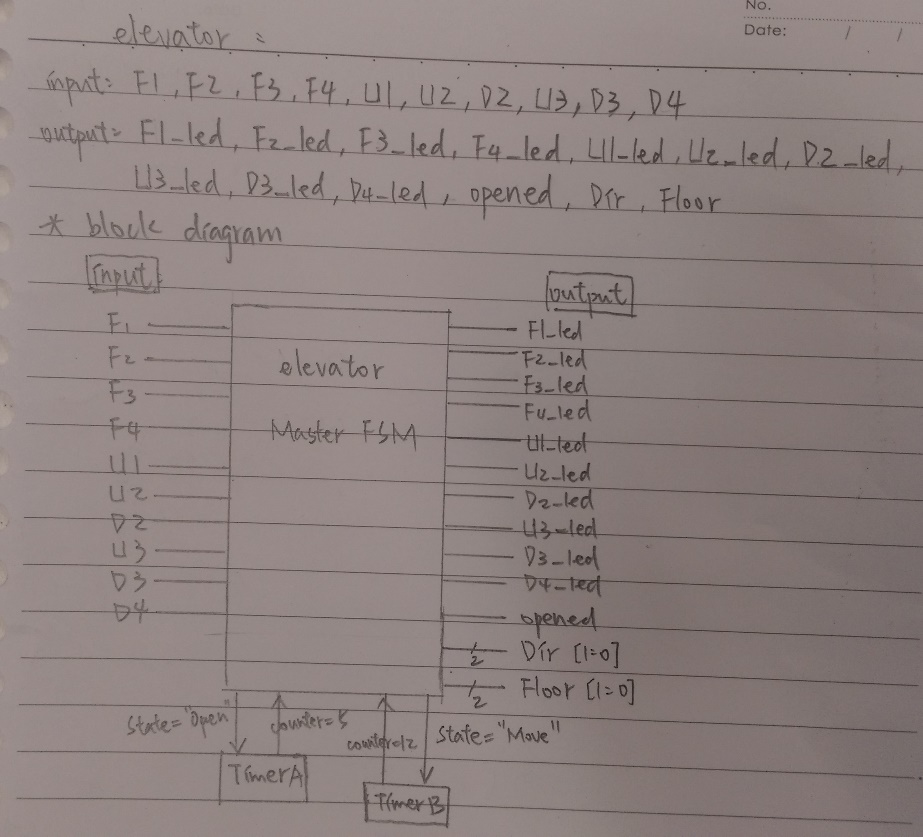 No.
Date: / /
elevator :
input: F1, F2, F3, F4, U1, U2, D2, U3, D3, D4
output: F1_led, F2_led, F3_led, F4_led, U1_led, U2_led, D2_led,
U3_led, D3_led, D4_led, opened, Dir, Floor
* block diagram
input
output
F1
F2
F3
F4
U1
U2
D2
U3
D3
D4
elevator
Master FSM
F1_led
F2_led
F3_led
F4_led
U1_led
U2_led
D2_led
U3_led
D3_led
D4_led
opened
2 Dir [1:0]
2 Floor [1:0]
state="Open"
counter=5
counter=12
state="Move"
TimerA
TimerB